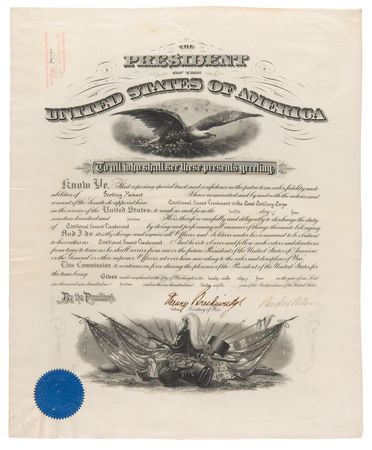 THE
PRESIDENT
OF THE
UNITED STATES OF AMERICA
To all who shall see these presents greeting:
Know Ye, That reposing special trust and confidence in the patriotism, valor, fidelity and
abilities of I have nominated and by and with the advice and
consent of the Senate do appoint him Additional Second Lieutenant in the Coast Artillery Corps
in the service of the United States: to rank as such from the twelfth day of June
nineteen hundred and He is therefore carefully and diligently to discharge the duty
of Additional Second Lieutenant by doing and performing all manner of things thereunto belonging.
And I do strictly charge and require all Officers and Soldiers under his command to be obedient
to his orders as Additional Second Lieutenant And he is to observe and follow such orders and directions
from time to time as he shall receive from me or the future President of the United States of America
or the General or other superior Officers set over him according to the rules and discipline of War.
This Commission to continue in force during the pleasure of the President of the United States for
the time being.
Given under my hand at the City of Washington this day of June in the year of our Lord
one thousand nine hundred and and in the one hundred and of the Independence of the United States.
By the President:
Henry Breckinridge
Secretary of War.